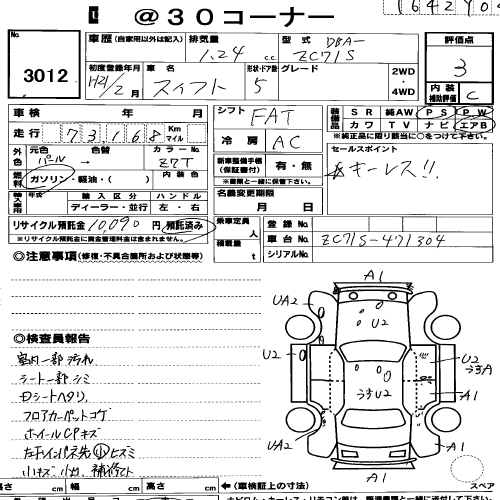 1642Y0
@30コーナー
No.
3012
車歴(自家用以外は記入)
排気量
1.24 cc
型式
DBA-
ZC71S
評価点
3
内装
補助評価
C
初度登録年月
H21/2月
車名
スイフト
形状・ドア数
5
グレード
2WD
・
4WD
車検 年 月
シフト
FAT
装備品
SR 純AW PS PW
カワ TV ナビ エアB
※純正品に限り該当に○をつけて下さい。
走行
73168 Km マイル
冷房
AC
セールスポイント
キーレス!!
外色
元色
パール
色替
→
カラーNo.
Z7T
内装色
燃料
ガソリン・軽油・( )
新車整備手帳
(保証書付)
有・無
※書類と一緒に保管下さい。
輸入車用
年式
輸入区分
ディーラー・並行
ハンドル
左・右
名義変更期限
月 日
リサイクル預託金
10,090円
預託済み
※リサイクル預託金に資金管理料金は含まれません。
乗車定員
人
積載量
t
登録No.
車台No.
ZC71S-471304
シリアルNo.
◎注意事項(修復・不具合箇所および状態等)
◎検査員報告
室内一部汚れ
シート一部シミ
Dシートヘタリ
フロアカーペットコゲ
ホイールCPキズ
左テインパネ先小ヒズミ
小キズ 小凹 補修アト
A1
UA2
U2
U2
U2
うろA
A1
うろU2
UA2
A1
A1
スペア
長さ cm
幅 cm
高さ cm
←(車検証上の寸法)